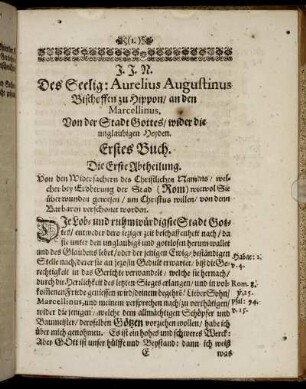 J. J. N.
Des Seelig: Aurelius Augustinus
Bischoffen zu Hippon/ an den
Marcellinus,
Von der Stadt Gottes/ wider die
unglaubigen Heyden.
Erstes Buch.
Die Erste Abtheilung.
Von den Widersachern des Christlichen Namens/ wel-
cher bey Eroberung der Stad (Rom) wiewol Sie
überwunden gewesen/ um Christus willen/ von denen
Barbaren verschonet worden.
DIe Lob- und ruhmwürdigste Stadt Got-
tes/ entweder dero itziger zeit beschaffenheit nach/ da
sie unter den unglaubigē und gottlosen herum wallet
und des Glaubens lebet/ oder der jenigen Ewig-beständigen
Stelle nach derer sie an jezo in Gedult erwartet/ biß Ge- Habac: 2.
rechtigkeit in das Gerichte verwandelt/ welche sie hernach/
durch der Herrlichkeit des letzten Sieges erlangen/ und in vol- Rom. 8.
kommenen Friede geniessen wird/
Marcellinus, und meinem versprechen nach/ zu verthätigen/ Psal: 94.
wider die jenigen/ welche dem allmächtigen Schöpfer und v. 15.
Baumeister/ deroselben Götzen vorziehen wollen/ habe ich
über mich genommen. Es ist ein hohes und schweres Werck:
Aber GOtt ist unser hülffe und Beystand: dann ich weiß
E was